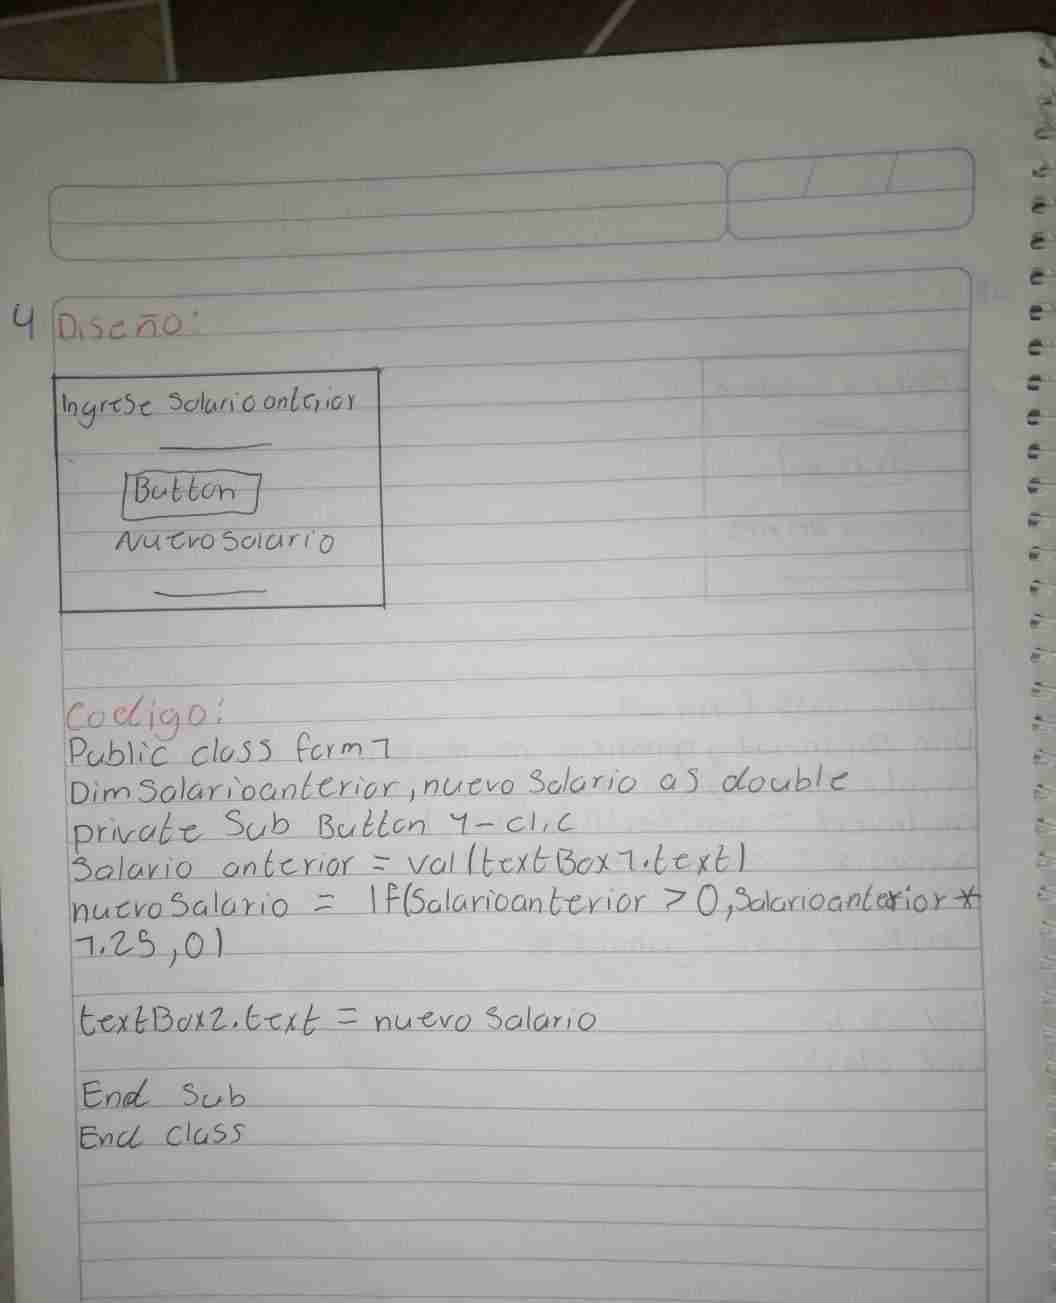 4 Diseño:
Ingrese Salario anterior
Button
Nuevo Salario
Codigo:
Public class form1
Dim Salarioanterior, nuevo Salario as double
private Sub Button 1-clic
Salario anterior = val(textBox1.text)
nuevo Salario = IF(Salarioanterior > 0, Salarioanterior *
1.25, 0)
textBox2.text = nuevo Salario
End Sub
End class